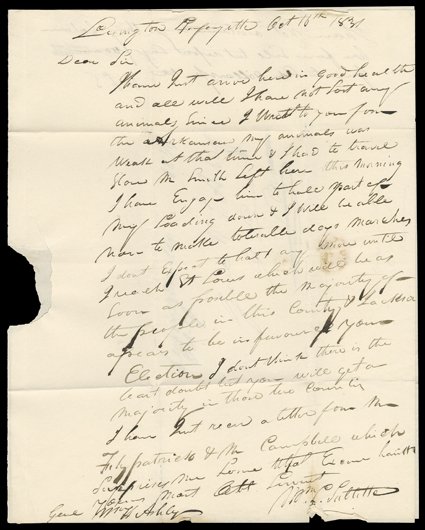 Lexington Lafayette Oct 16th 1831
Dear Sir
I have Just arive here in good health
and all well I have not lost any
animals Since I Wrote to you from
the Arkansaw my animals was
Weak at that time & I had to travel
Slow Mr Smith left here this Morning
I have Engage him to hale part of
my loading down & I Will be able
now to make tolerable days Marches
I dont Expect to halt any more until
I reach St Louis which will be as
Soon as posible the Majority of
the people in this County & Jackson
apears to be in favour of your
Election I dont think there is the
least doubt but you will get a
majority in those two Counties
I have Just recev a letter from Mr
Fitzpatrick & Mr Campbell which
me Some that I came
Yours Most Obt Servnt
Wm L. Sublette
Genl Wm H Ashley